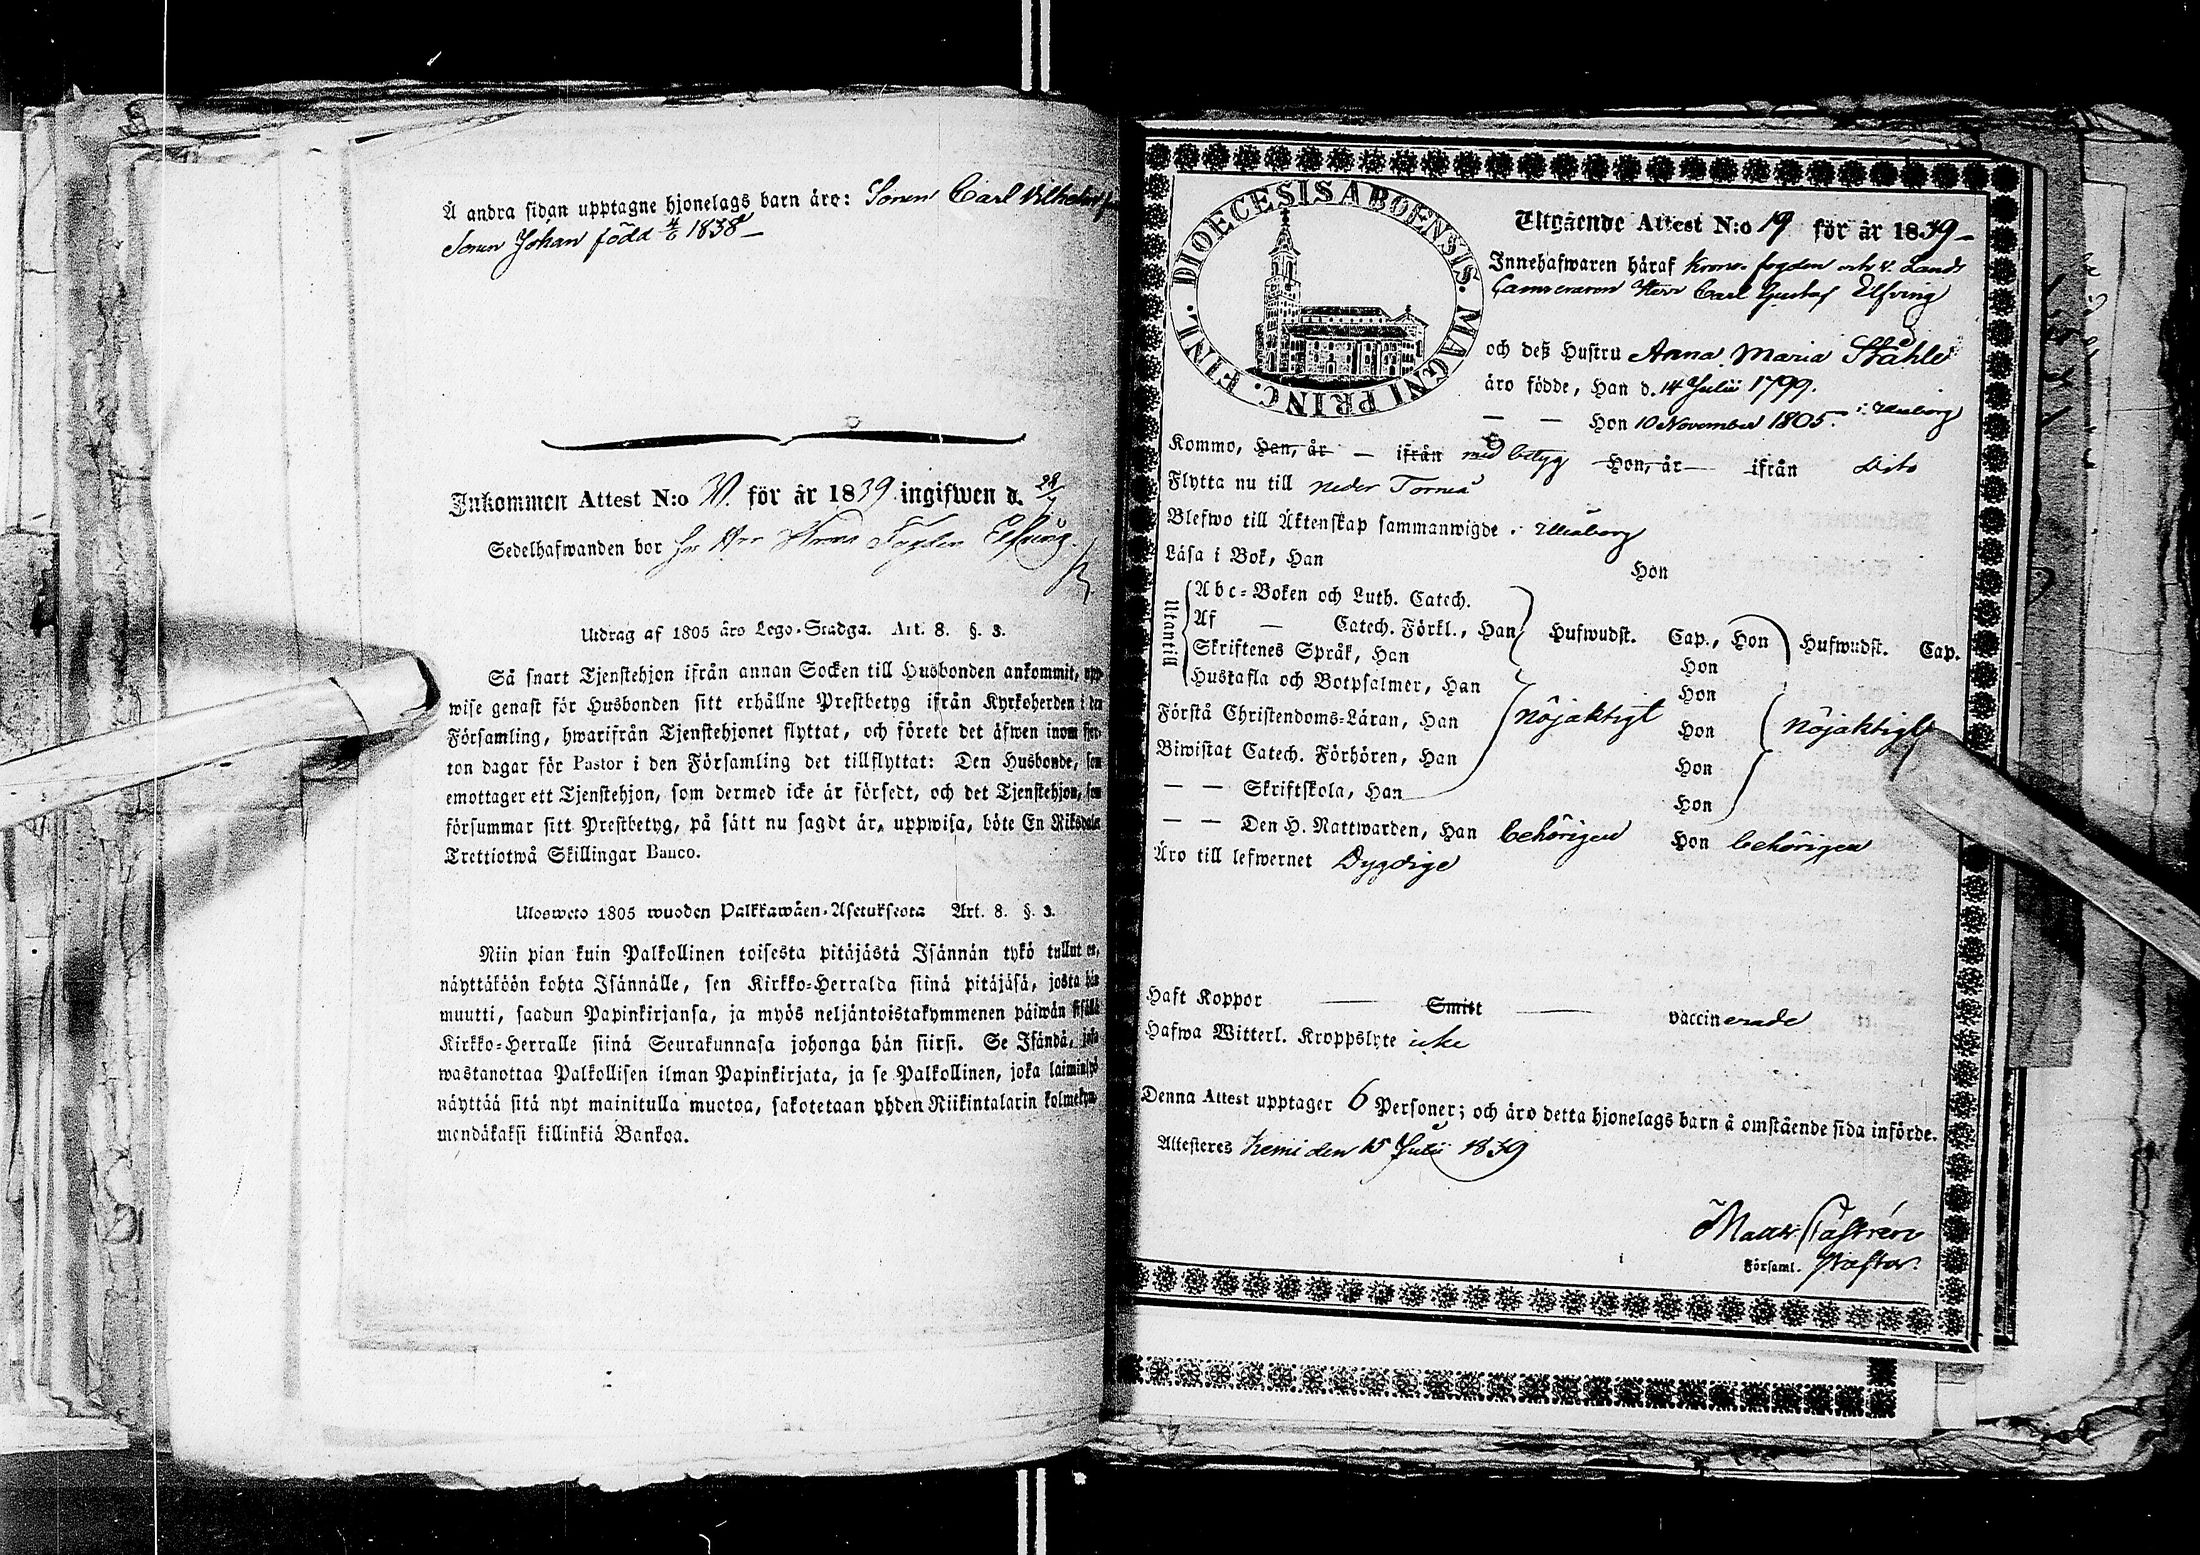 Å andra sidan upptagne hjonelags barn äro: Sonen Carl Vilhelm
Sonen Johan född 4/6 1838
Inkommen Attest N:o för år 1839 ingifwen d. 28/7
Sedelhafwanden bor Elfving
Utdrag af 1805 års Lego-Stadga. Art. 8. §. 3.
Så snart Tjenstehjon ifrån annan Socken till Husbonden ankommit, upp-
wise genast för Husbonden sitt erhållne Prestbetyg ifrån Kyrkoherden i den
Församling, hwarifrån Tjenstehjonet flyttat, och förete det äfwen inom fjor-
ton dagar för Pastor i den Församling det tillflyttat: Den Husbonde, som
emottager ett Tjenstehjon, som dermed icke är försedt, och det Tjenstehjon, som
försummar sitt Prestbetyg, på sätt nu sagdt är, uppwisa, böte En Riksdaler
Trettiotwå Skillingar Banco.
Uloswето 1805 wuoden Palkkawäen-Asetuksesta Art. 8. §. 3.
Niin pian kuin Palkollinen toisesta pitäjästä Isännän tykö tullut on,
näyttäköön kohta Isännälle, sen Kirkko-Herralda siinä pitäjäsä, josta hän
muutti, saadun Papinkirjansa, ja myös neljäntoistakymmenen päiwän sisällä
Kirkko-Herralle siinä Seurakunnasa johonga hän siirsi. Se Isändä, joka
wastanottaa Palkollisen ilman Papinkirjata, ja se Palkollinen, joka laiminlyö
näyttää sitä nyt mainitulla muotoa, sakotetaan yhden Riikintalarin kolmekym-
mendäkaksi killinkiä Bankoa.
DIOECESIS ABOENSIS. MAGNI PRINC. FINL.
Utgående Attest N:o 19 för år 1839
Innehafwaren häraf Krono-fogden och v. Lands
Cameraren Herr Carl Gustaf Elfving
och deß Hustru Anna Maria Ståhle
äro födde, Han d. 14 Julii 1799.
— — Hon 10 November 1805. i Uleåborg
Kommo, Han, år — ifrån med betyg Hon, år — ifrån dito
Flytta nu till Neder Torneå
Blefwo till Äktenskap sammanwigde i Uleåborg
Läsa i Bok, Han Hon
Utantill
Abc-Boken och Luth. Catech.
Af — Catech. Förkl., Han Hufwudst. Cap., Hon Hufwudst. Cap.
Skriftenes Språk, Han Hon
Hustafla och Botpsalmer, Han Hon
Förstå Christendoms-Läran, Han nöjaktigt Hon nöjaktigt
Biwistat Catech. Förhören, Han Hon
— — Skriftskola, Han Hon
— — Den H. Nattwarden, Han behörigen Hon behörigen
Äro till lefwernet Dygdige
Haft Koppor — Smitt — vaccinerade
Hafwa Witterl. Kroppslyte icke
Denna Attest upptager 6 Personer; och äro detta hjonelags barn å omstående sida införde.
Attesteres Kemi den 15 Julii 1839
Matth: Castrén
Församl. Pastor.